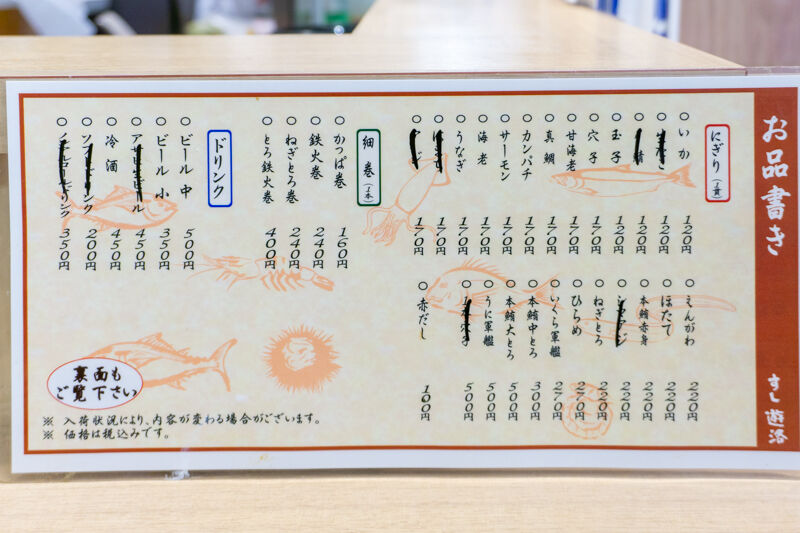 お品書き
すし 遊洛
にぎり(1貫)
いか 120円
120円
120円
玉子 120円
穴子 170円
甘海老 170円
真鯛 170円
カンパチ 170円
サーモン 170円
海老 170円
うなぎ 170円
170円
170円
えんがわ 220円
ほたて 220円
本鮪赤身 220円
220円
ねぎとろ 220円
ひらめ 270円
いくら軍艦 270円
本鮪中とろ 300円
本鮪大とろ 500円
うに軍艦 500円
500円
赤だし 100円
細巻(1本)
かっぱ巻 160円
鉄火巻 240円
ねぎとろ巻 240円
とろ鉄火巻 400円
ドリンク
ビール 中 500円
ビール 小 350円
ビール 450円
冷酒 450円
ソフトドリンク 200円
350円
裏面も
ご覧下さい
※ 入荷状況により、内容が変わる場合がございます。
※ 価格は税込みです。